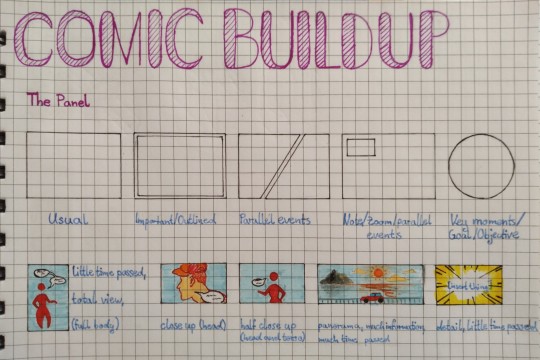 COMIC BUILDUP
The Panel
Usual
Important/Outlined
Parallel events
Note/Zoom/parallel
events
Key moments/
Goal/Objective
Little time passed,
total view,
(full body)
close up (head)
half close up
(head and torso)
panorama, much information,
much time passed
detail, little time passed